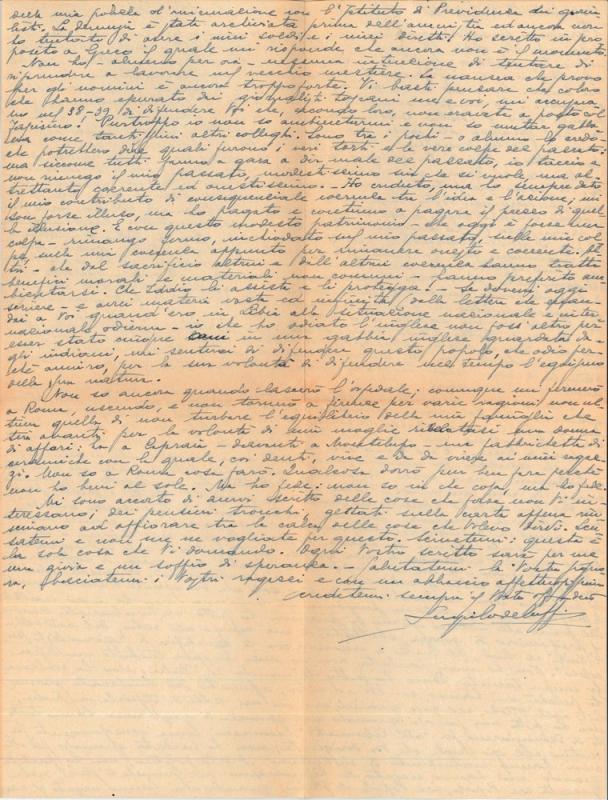 della mia podestà d'animazione non l'Istituto di Previdenza dei giorna
listi. La denunzia è stata archiviata prima dell'amnistia ed ancora non
ho tentato di avere i miei soldi e i miei diritti. Ho scritto in pro
posito a Greco il quale mi risponde che ancora non è il momento.
Non ho - almeno per ora - nessuna intenzione di tentare di
riprendere a lavorare nel vecchio mestiere. La nausea che provo
per gli uomini è ancora troppo forte. Vi basti pensare che coloro
che hanno epurato dei giornalisti toscani me e voi, mi
nel 38-39 di difendere Voi che, secondo loro, non eravate a posto col
fascismo! Purtroppo io non so
come tanti miei altri colleghi. Sono tra i pochi - o almeno lo credo -
che potrebbero dire quali furono i veri torti e le vere colpe del passato;
ma siccome tutti fanno a gara a dir male del passato, io taccio e
non rinnego il mio passato, modestissimo sin che si vuole, ma al-
trettanto coerente ed onestissimo. - Ho creduto, ma ho sempre dato
il mio contributo di consequenziale coerenza tra l'idea e l'azione; mi
son forse illuso, ma ho pagato e continuo a pagare il prezzo di quel-
la illusione. E con questo modesto patrimonio - che oggi è forse una
colpa - rimango fermo, inchiodato sul mio passato, sulle mie col
pe, sulla mia coerenza appunto per rimanere onesto e coerente. Gli
altri - che dal sacrificio altrui e dall'altrui coerenza hanno tratto
benefici morali e materiali non comuni - hanno preferito am
bientarsi. Che Iddio li assista e li protegga! - Se dovessi oggi
scrivere - e avrei materia vasta ed infinita, delle lettere
a Voi quand'ero in Libia alla situazione nazionale e inter
nazionale odierna - io che ho odiato l'inglese non foss'altro per
esser stato cinque anni in una gabbia inglese guardata da
gli indiani, mi sentirei di difendere questo popolo, che odio per
ché ammiro, per la sua volontà di difendere nel tempo l'egoismo
della sua natura.
Non so ancora quando lascerò l'ospedale; comunque mi fermerò
a Roma, uscendo, e non tornerò a Firenze per varie ragioni non ul-
tima quella di non turbare l'equilibrio della mia famiglia che
tira avanti per la volontà di mia moglie rivelatasi una donna
di affari: ha, a Capraia - davanti a Montelupo - una fabbrichetta di
ceramiche con la quale, coi denti, vive e dà da vivere ai miei ragaz-
zi. Non so a Roma cosa farò. Qualcosa dovrò pur ben fare perché
non ho beni al sole. Ma ho fede: non so in che cosa, ma ho fede.
Mi sono accorto di avervi scritto delle cose che forse non Vi in-
teressano; dei pensieri tronchi, gettati sulla carta appena
ad affiorare tra la calca delle cose che volevo dirvi. Scu
satemi e non me ne vogliate per questo. Scrivetemi: questa è
la sola cosa che Vi domando. Ogni Vostro scritto sarà per me
una gioia e un soffio di speranza. - Salutatemi la Vostra signo
ra, abbracciatemi i Vostri ragazzi e con un abbraccio affettuosissimo
credetemi sempre il Vostro